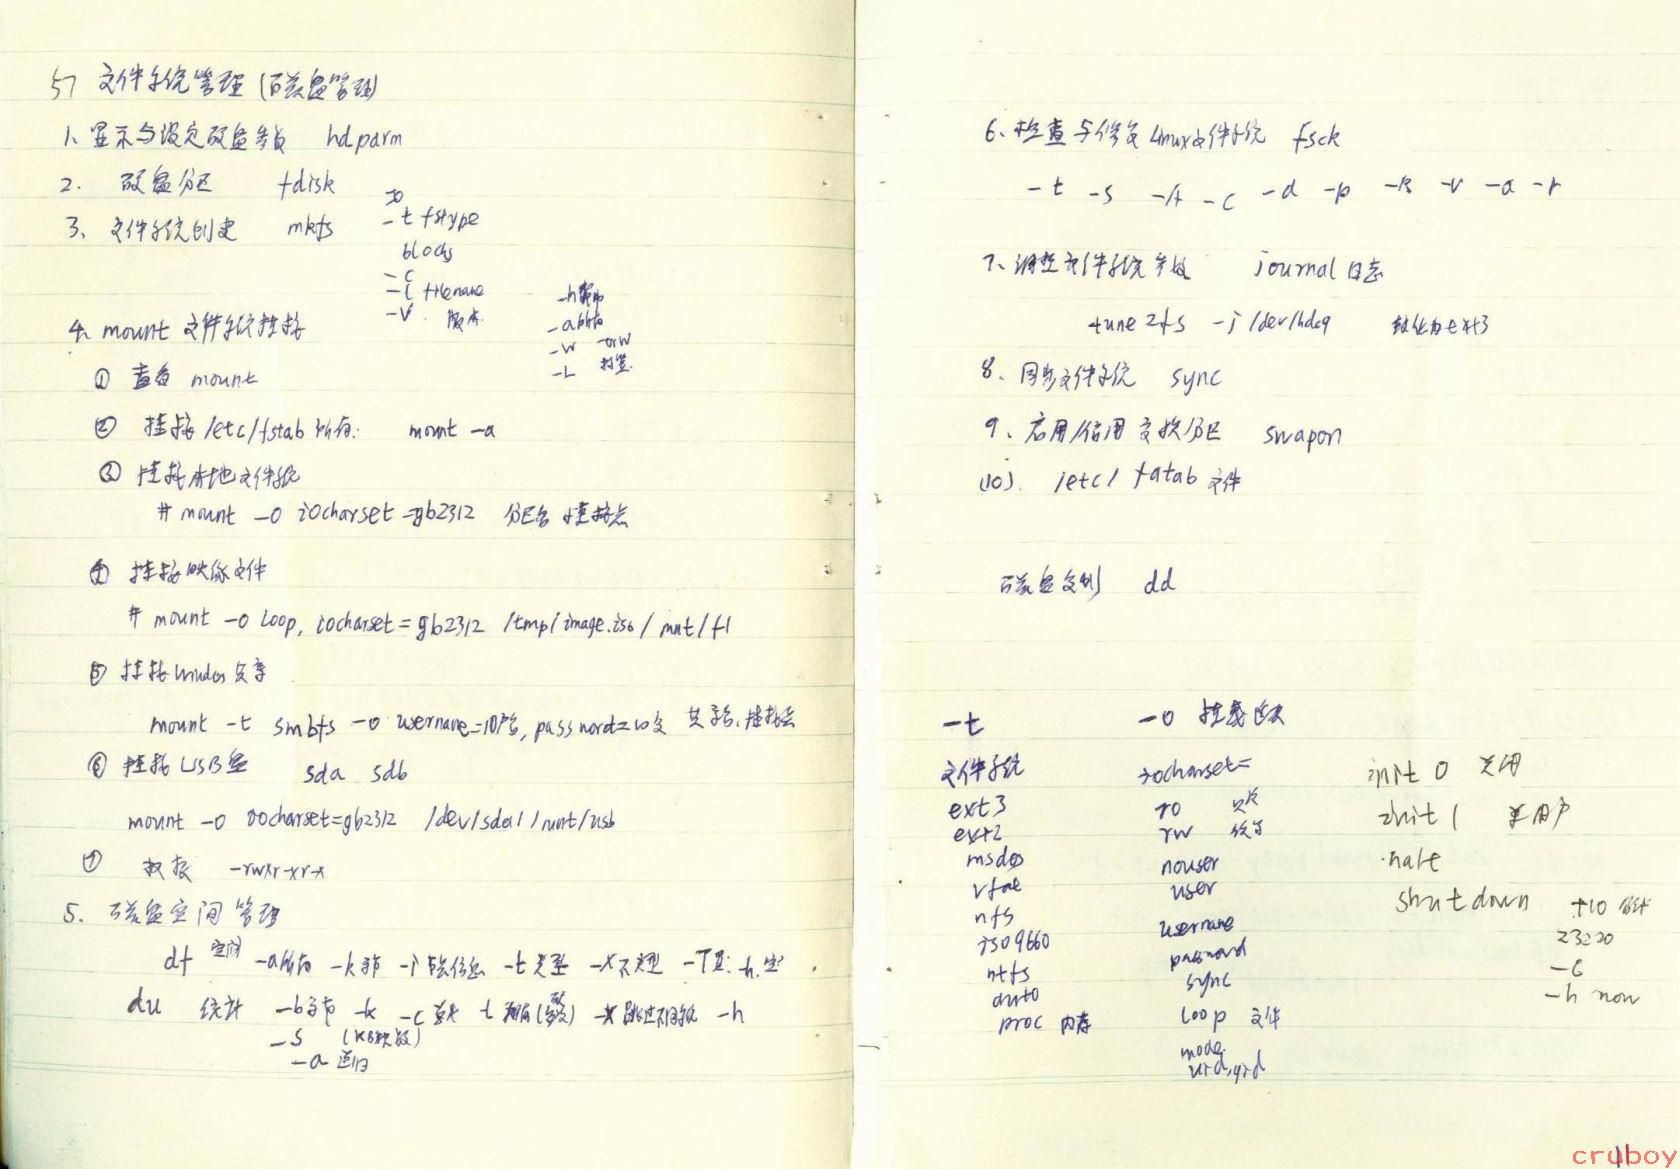 57 文件系统管理(磁盘管理)
1、显示与设定磁盘参数 hdparm
2. 磁盘分区 fdisk
3、文件系统创建 mkfs
-t fstype
blocks
-c
-l filename
-V 版本
4、mount 文件系统挂接
-h 帮助
-a
-w -o rw
-L 标签
① 查看 mount
② 挂接 /etc/fstab 所有: mount -a
③ 挂接本地文件系统
# mount -o iocharset=gb2312 分区名 挂接点
④ 挂接映像文件
# mount -o loop, iocharset=gb2312 /tmp/image.iso /mnt/fl
⑤ 挂接 windos 共享
mount -t smbfs -o username=用户名, password=口令 共享名、挂接点
⑥ 挂接 USB盘 sda sdb
mount -o iocharset=gb2312 /dev/sda1 /mnt/usb
⑦ 权限 -rwxr-xr-x
5、磁盘空间管理
df 空间 -a所有 -k 字节 -i 节点信息 -t 类型 -x不类型 -T
du 统计 -b字节 -k -c 总长 -x 跳过不同系统 -h
-s (KB块数)
-a 递归
6、检查与修复Linux文件系统 fsck
-t -s -A -C -d -p -R -V -a -r
7、调整文件系统参数 journal 日志
tune2fs -j /dev/hda9 转化为ext3
8、同步文件系统 sync
9、启用/信用 交换分区 swapon
(10). /etc/fatab 文件
磁盘复制 dd
-t
文件系统
ext3
ext2
msdos
vfat
nfs
iso9660
ntfs
auto
proc 内存
-o 挂载
iocharset=
ro 只读
rw 读写
nouser
user
username
password
sync
loop 文件
mode
uid,gid
init 0 关闭
init 1 单用户
halt
shutdown +10
23:20
-c
-h now
cruboy